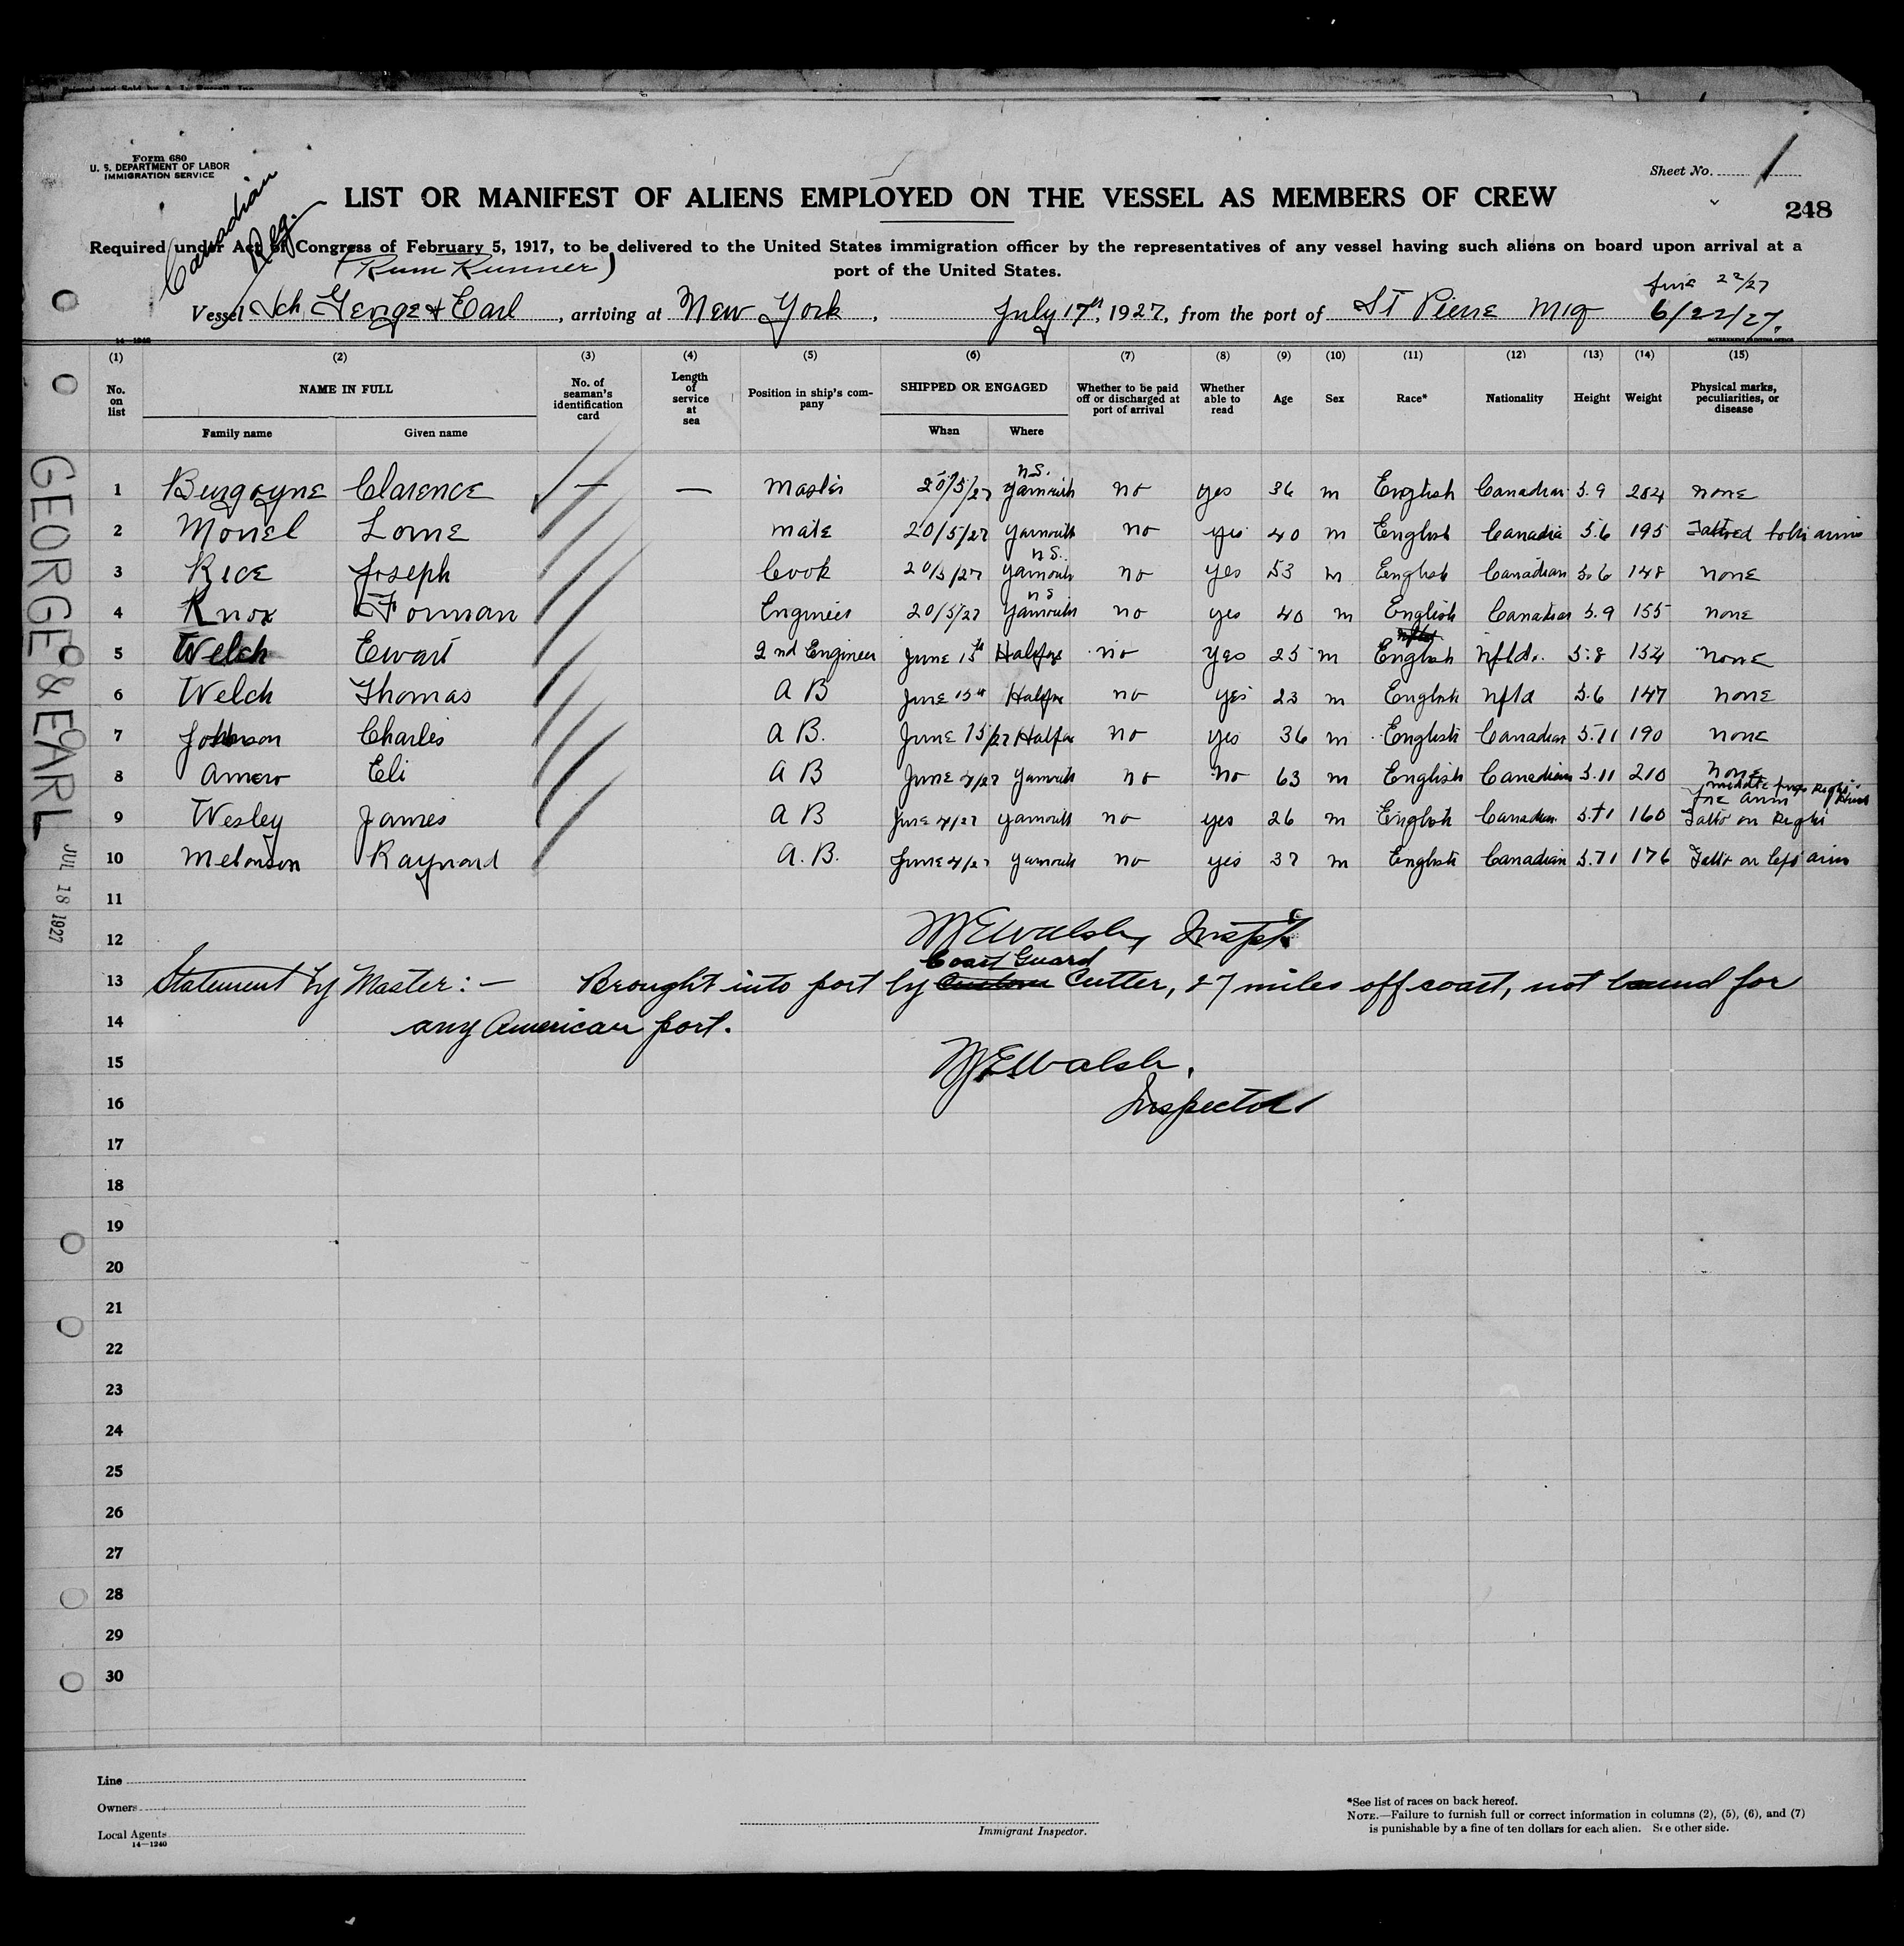 Form 680
U. S. DEPARTMENT OF LABOR
IMMIGRATION SERVICE
Canadian
Reg.
Sheet No. 1
LIST OR MANIFEST OF ALIENS EMPLOYED ON THE VESSEL AS MEMBERS OF CREW
248
Required under Act of Congress of February 5, 1917, to be delivered to the United States immigration officer by the representatives of any vessel having such aliens on board upon arrival at a
port of the United States.
(Rum Runner)
June 22/27
Vessel Sch George & Earl, arriving at New York, July 17th, 1927, from the port of St Pierre Miq 6/22/27.
14—1240
GOVERNMENT PRINTING OFFICE
(1) (2) (3) (4) (5) (6) (7) (8) (9) (10) (11) (12) (13) (14) (15)
No. on list NAME IN FULL Family name Given name No. of seaman's identification card Length of service at sea Position in ship's company SHIPPED OR ENGAGED When Where Whether to be paid off or discharged at port of arrival Whether able to read Age Sex Race* Nationality Height Weight Physical marks, peculiarities, or disease
1 Burgoyne Clarence — — Master 20/5/27 Yarmouth N.S. no yes 36 m English Canadian 5.9 204 none
2 Morrel Lorne mate 20/5/27 Yarmouth no yes 40 m English Canadia 5.6 195 both arms
3 Rice Joseph Cook 20/5/27 Yarmouth N.S. no yes 53 m English Canadian 5.6 148 none
4 Knox Forman Engineer 20/5/27 Yarmouth N S no yes 40 m English Canadian 5.9 155 none
5 Welch Ewart 2nd Engineer June 15th Halifax no yes 25 m English nfld. 5.8 154 none
6 Welch Thomas A B June 15th Halifax no yes 23 m English nfld 5.6 147 none
7 Johnson Charlis A B. June 15/27 Halifax no yes 36 m English Canadian 5.11 190 none
8 Amero Eli A B June 4/27 Yarmouth no no 63 m English Canadian 5.11 210 none
middle finger Right Hand
fore arm
9 Wesley James A B June 4/27 Yarmouth no yes 26 m English Canadian 160 Tatto on Right
10 Melonson Raymond A. B. June 4/27 Yarmouth no yes 37 m English Canadian 176 Tatto on left arm
11
12 W E Walsh, Inspt.
Coast Guard
13 Statement by Master: — Brought into port by Custom Cutter, 27 miles off coast, not bound for
14 any American port.
15 W. E. Walsh,
16 Inspector
17
18
19
20
21
22
23
24
25
26
27
28
29
30
GEORGE & EARL
JUL 18 1927
Line
Owners
Local Agents
14—1240
Immigrant Inspector.
*See list of races on back hereof.
NOTE.—Failure to furnish full or correct information in columns (2), (5), (6), and (7)
is punishable by a fine of ten dollars for each alien. See other side.